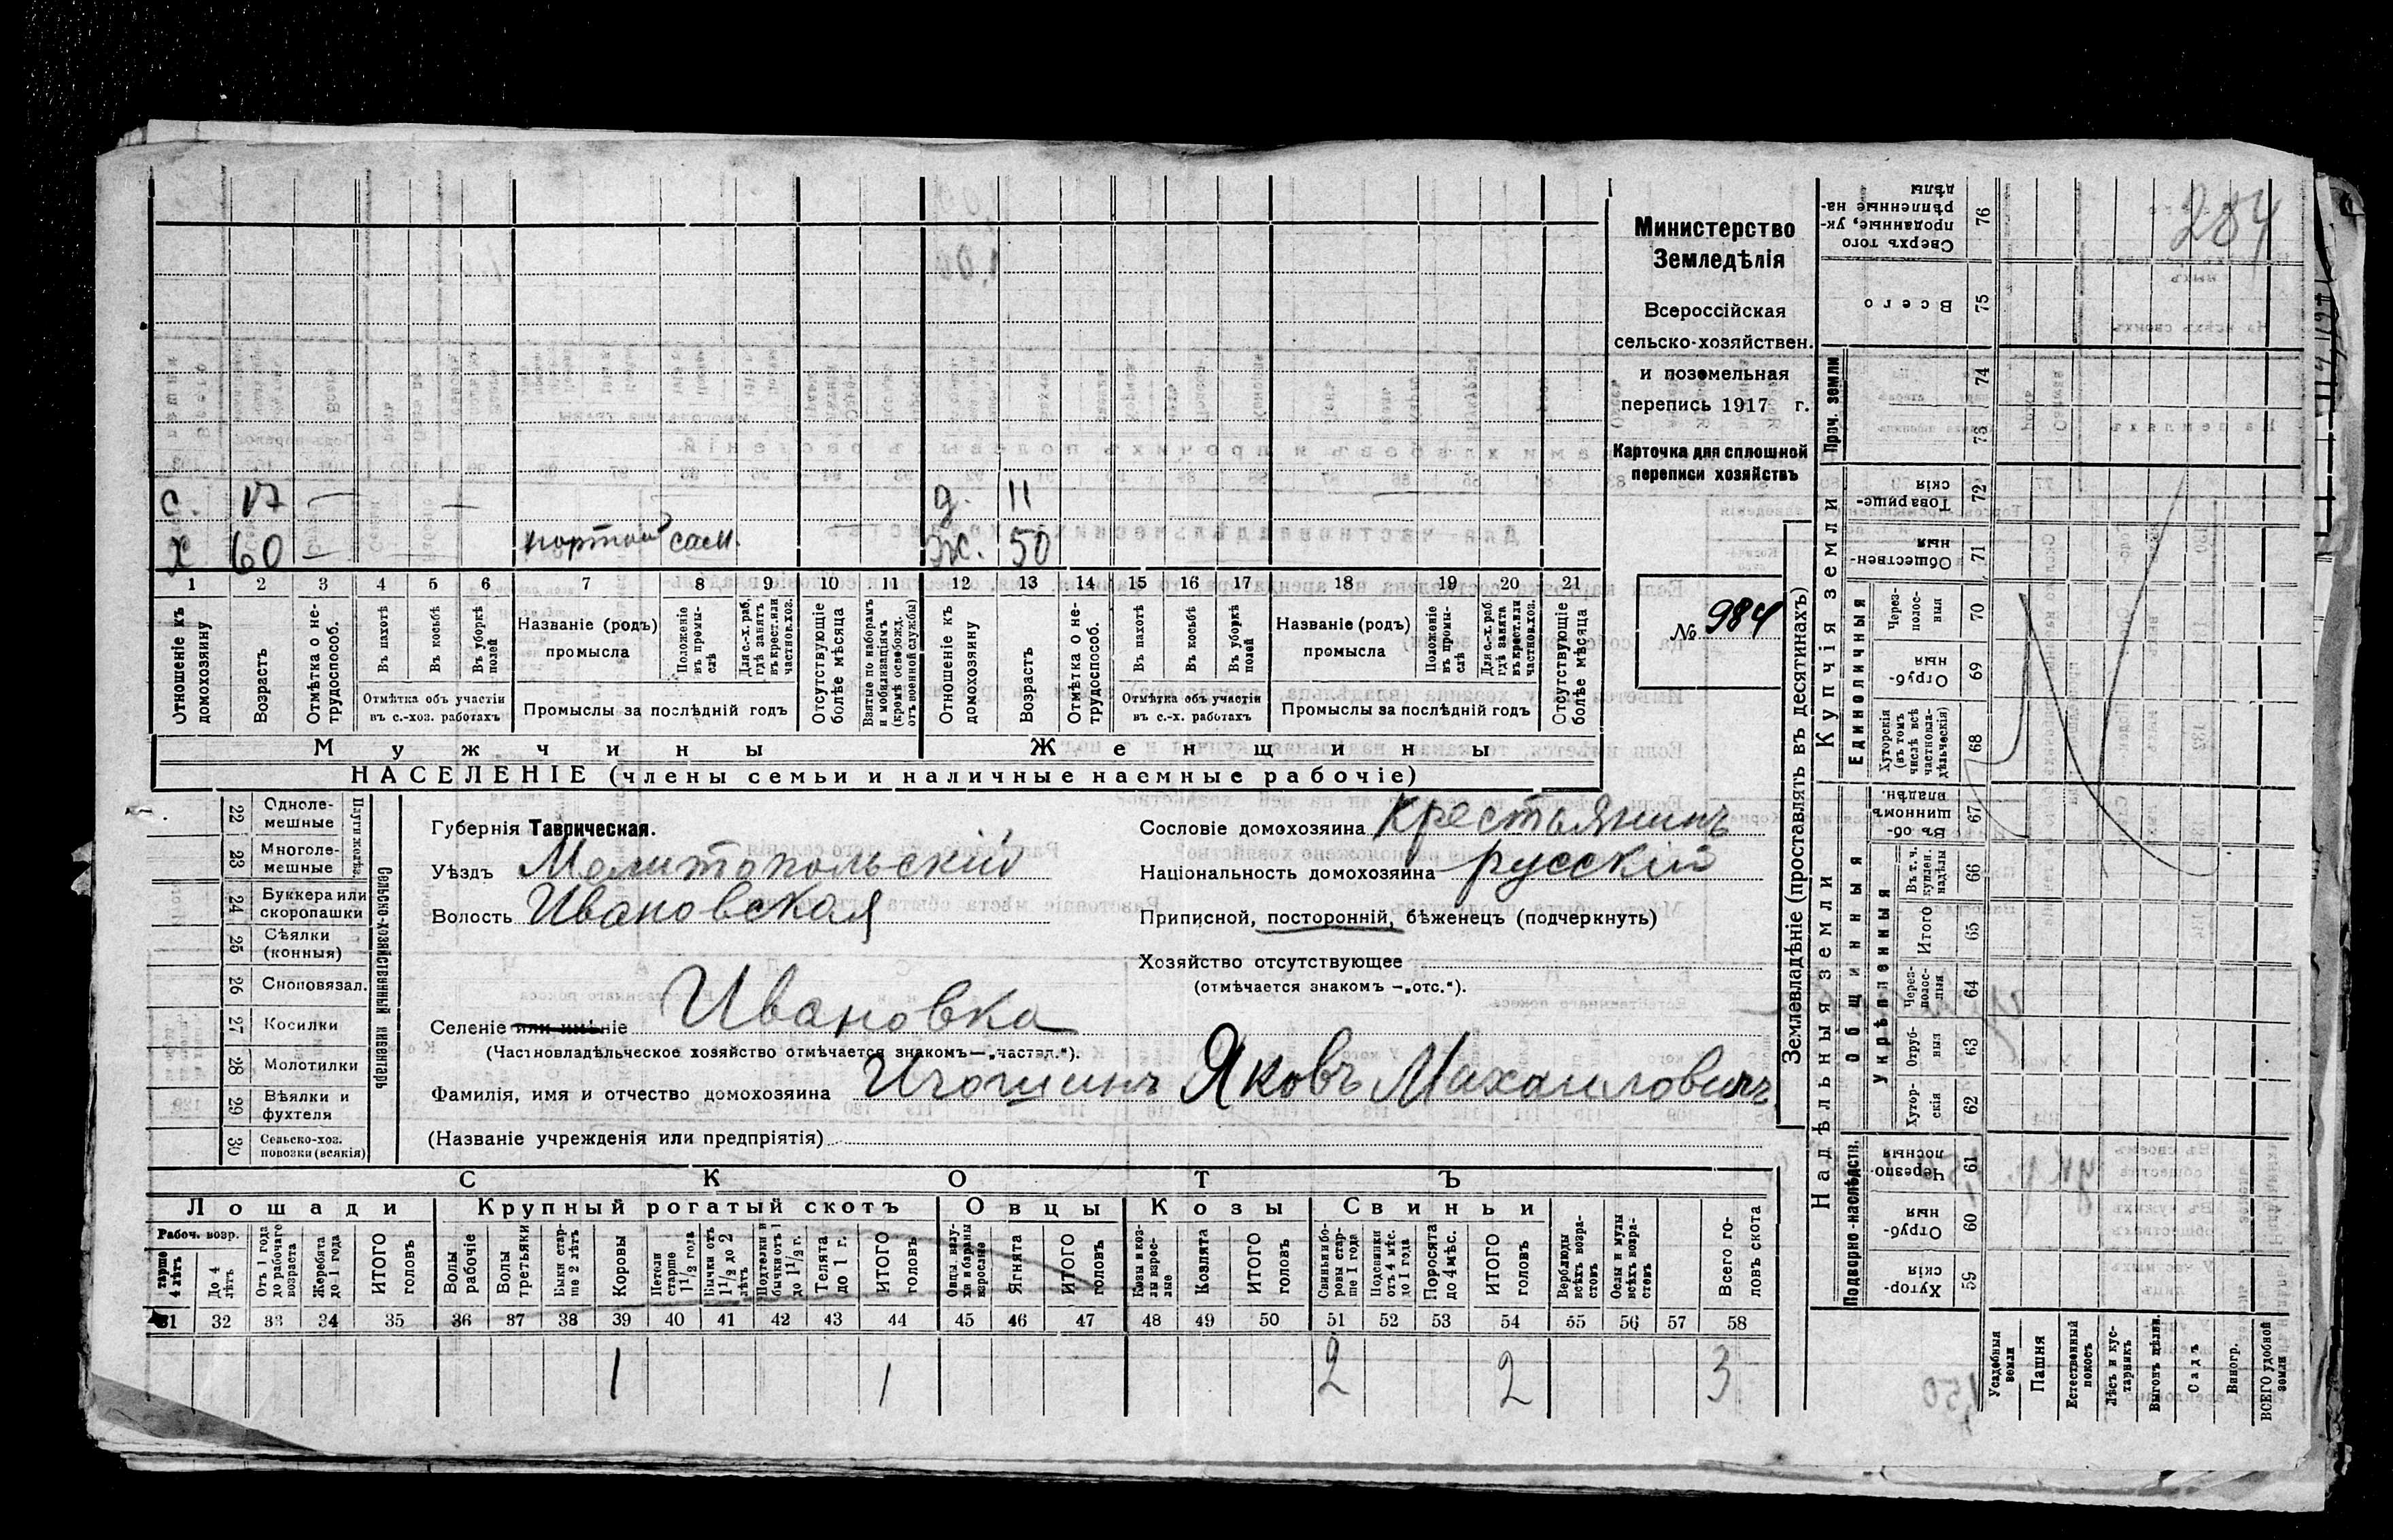 284
Министерство
Земледѣлія
Всероссійская
сельско-хозяйствен.
и поземельная
перепись 1917 г.
Карточка для сплошной
переписи хозяйствъ
№ 984
с. 17 — — д. 11
х 60 — портной сам. ж. 50
1 2 3 4 5 6 7 8 9 10 11 12 13 14 15 16 17 18 19 20 21
Отношеніе къ домохозяину
Возрастъ
Отмѣтка о не-трудоспособ.
Въ пахотѣ
Въ косьбѣ
Въ уборкѣ полей
Отмѣтка объ участіи
въ с.-хоз. работахъ
Названіе (родъ)
промысла
Положеніе въ промы-слѣ
Для с.-х. раб., гдѣ занятъ въ крест. или частнов. хоз.
Промыслы за послѣдній годъ
Отсутствующіе болѣе мѣсяца
Взятые по наборамъ и мобилизаціямъ (кромѣ освобожд. отъ военной службы)
Отношеніе къ домохозяину
Возрастъ
Отмѣтка о не-трудоспособ.
Въ пахотѣ
Въ косьбѣ
Въ уборкѣ полей
Отмѣтка объ участіи
въ с.-х. работахъ
Названіе (родъ)
промысла
Положеніе въ промы-слѣ
Для с.-х. раб. гдѣ занята въ крест. или частнов. хоз.
Промыслы за послѣдній годъ
Отсутствующіе болѣе мѣсяца
Мужчины Женщины
НАСЕЛЕНІЕ (члены семьи и наличные наемные рабочіе)
Сельско-хозяйственный инвентарь
Плуги желѣз.
22 Одноле-мешные
23 Многоле-мешные
24 Буккера или скоропашки
25 Сѣялки (конныя)
26 Сноповязал.
27 Косилки
28 Молотилки
29 Вѣялки и фухтеля
30 Сельско-хоз. повозки (всякія)
Губернія Таврическая.
Уѣздъ Мелитопольскій
Волость Ивановская
Селеніе или имѣніе Ивановка
(Частновладѣльческое хозяйство отмѣчается знакомъ—„частвл.“).
Фамилія, имя и отчество домохозяина Игошинъ Яковъ Михаиловичъ
(Названіе учрежденія или предпріятія)
Сословіе домохозяина Крестьянинъ
Національность домохозяина русскій
Приписной, посторонній, бѣженецъ (подчеркнуть)
Хозяйство отсутствующее
(отмѣчается знакомъ —„отс.“).
СКОТЪ
Лошади Крупный рогатый скотъ Овцы Козы Свиньи
Рабоч. возр.
тарше 4 лѣтъ
До 4 лѣтъ
Отъ 1 года до рабочаго возраста
Жеребята до 1 года
ИТОГО головъ
Волы рабочіе
Волы третьяки
Быки стар-ше 2 лѣтъ
Коровы
Нетели старше 1 1/2 года
Бычки отъ 1 1/2 до 2 лѣтъ
Подтелки и бычки отъ 1 до 1 1/2 г.
Телята до 1 г.
ИТОГО головъ
Овцы, валу-хи и бараны взрослые
Ягнята
ИТОГО головъ
Козы и коз-лы взрос-лые
Козлята
ИТОГО головъ
Свиньи и бо-ровы стар-ше 1 года
Подсвинки отъ 4 мѣс. до 1 года
Поросята до 4 мѣс.
ИТОГО головъ
Верблюды всѣхъ возра-стовъ
Ослы и мулы всѣхъ возра-стовъ
Всего го-ловъ скота
31 32 33 34 35 36 37 38 39 40 41 42 43 44 45 46 47 48 49 50 51 52 53 54 55 56 57 58
1 1 2 2 3
Землевладѣніе (проставлять въ десятинахъ)
Надѣльныя земли
Купчія земли
Проч. земли
Общинныя
Укрѣпленныя
Единоличныя
Подворно-наслѣдств.
76 Сверхъ того проданные, ук-рѣпленные на-дѣлы
75 Всего
74
73
72 Товарище-скія
71 Обществен-ныя
70 Через-полос-ныя
69 Отруб-ныя
68 Хуторскія (въ томъ числѣ всѣ частновла-дѣльческія)
67 Въ об-щинномъ владѣн.
66 Въ т. ч. куплен. надѣлы
65 Итого
64 Через-полос-ныя
63 Отруб-ныя
62 Хутор-скія
61 Черезпо-лосныя
60 Отруб-ныя
59 Хутор-скія
Усадебныя земли
Пашня
Естественный покосъ
Лѣсъ и кус-тарникъ
Выгонъ цѣлин.
Садъ
Виногр.
ВСЕГО удобной земли